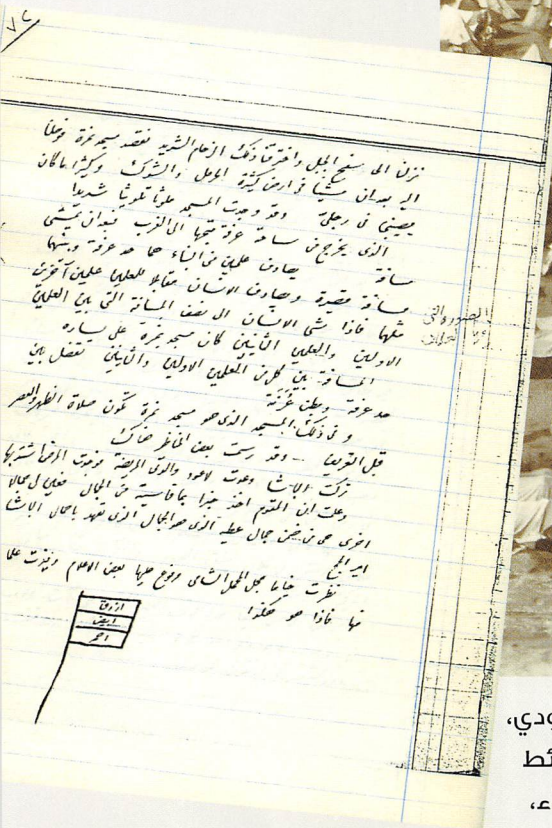 ٧٤
نزلنا الى سفح الجبل واخترقنا ذلك الزحام الشديد نقصد مسجد نمرة وصلنا
اليه بعد ان مشينا في ارض كثيرة الرمل والشوك وكثيرا ما كان
يصيبني في رجلي وقد وجدت المسجد ملوثا تلويثا شديدا
الذي يخرج من مسافة عرفة متجها الى الغرب فبعد ان تمشى
مسافة يصادف علمين من البناء هما حد عرفة وبينهما
مسافة قصيرة ويصادف الانسان مقابلا للعلمين علمين آخرين
مثلها فاذا مشى الانسان الى نصف المسافة التي بين العلمين
الاولين والعلمين الثانيين كان مسجد نمرة على يساره
المسافة بين كل من العلمين الاولين والثانيين تفصل بين
حد عرفة وبطن عرنة
و في ذلك المسجد الذي هو مسجد نمرة تكون صلاة الظهر والعصر
قبل التعريف وقد رسمت بعض المناظر هناك
تركت الباشا وعدت لاعود والدتي المريضة
وعلمت ان المقوم اخذ جمال
اخرى هي من ضمن جمال عطيه الذي هو الجمال الذي تعهد باحمال الباشا
امير الحج
نظرت خياما محل المحمل الشامي ومرفوع عليها بعض الاعلام وميزت علما
منها فاذا هو هكذا
ازرق
ابيض
احمر
الصورة التي
ودي،
ائط
ء،